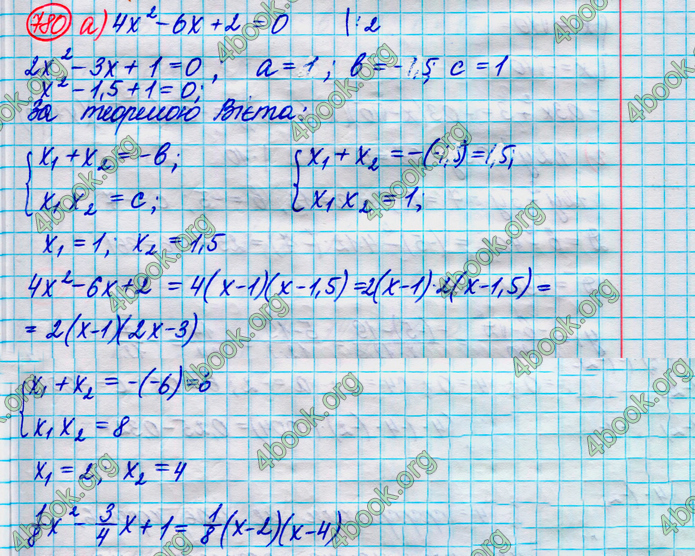 780 а) 4x² - 6x + 2 = 0 |:2
2x² - 3x + 1 = 0, a = 1; в = -1,5 c = 1
x² - 1,5 + 1 = 0;
За теоремою Вієта:
{ x₁ + x₂ = -в; { x₁ + x₂ = -(-1,5) = 1,5;
{ x₁ x₂ = c; { x₁ x₂ = 1;
x₁ = 1; x₂ = 1,5
4x² - 6x + 2 = 4(x-1)(x-1,5) = 2(x-1)·2(x-1,5) =
= 2(x-1)(2x-3)
{ x₁ + x₂ = -(-6) = 6
{ x₁ x₂ = 8
x₁ = 2; x₂ = 4
1/8 x² - 3/4 x + 1 = 1/8 (x-2)(x-4)
4book.org